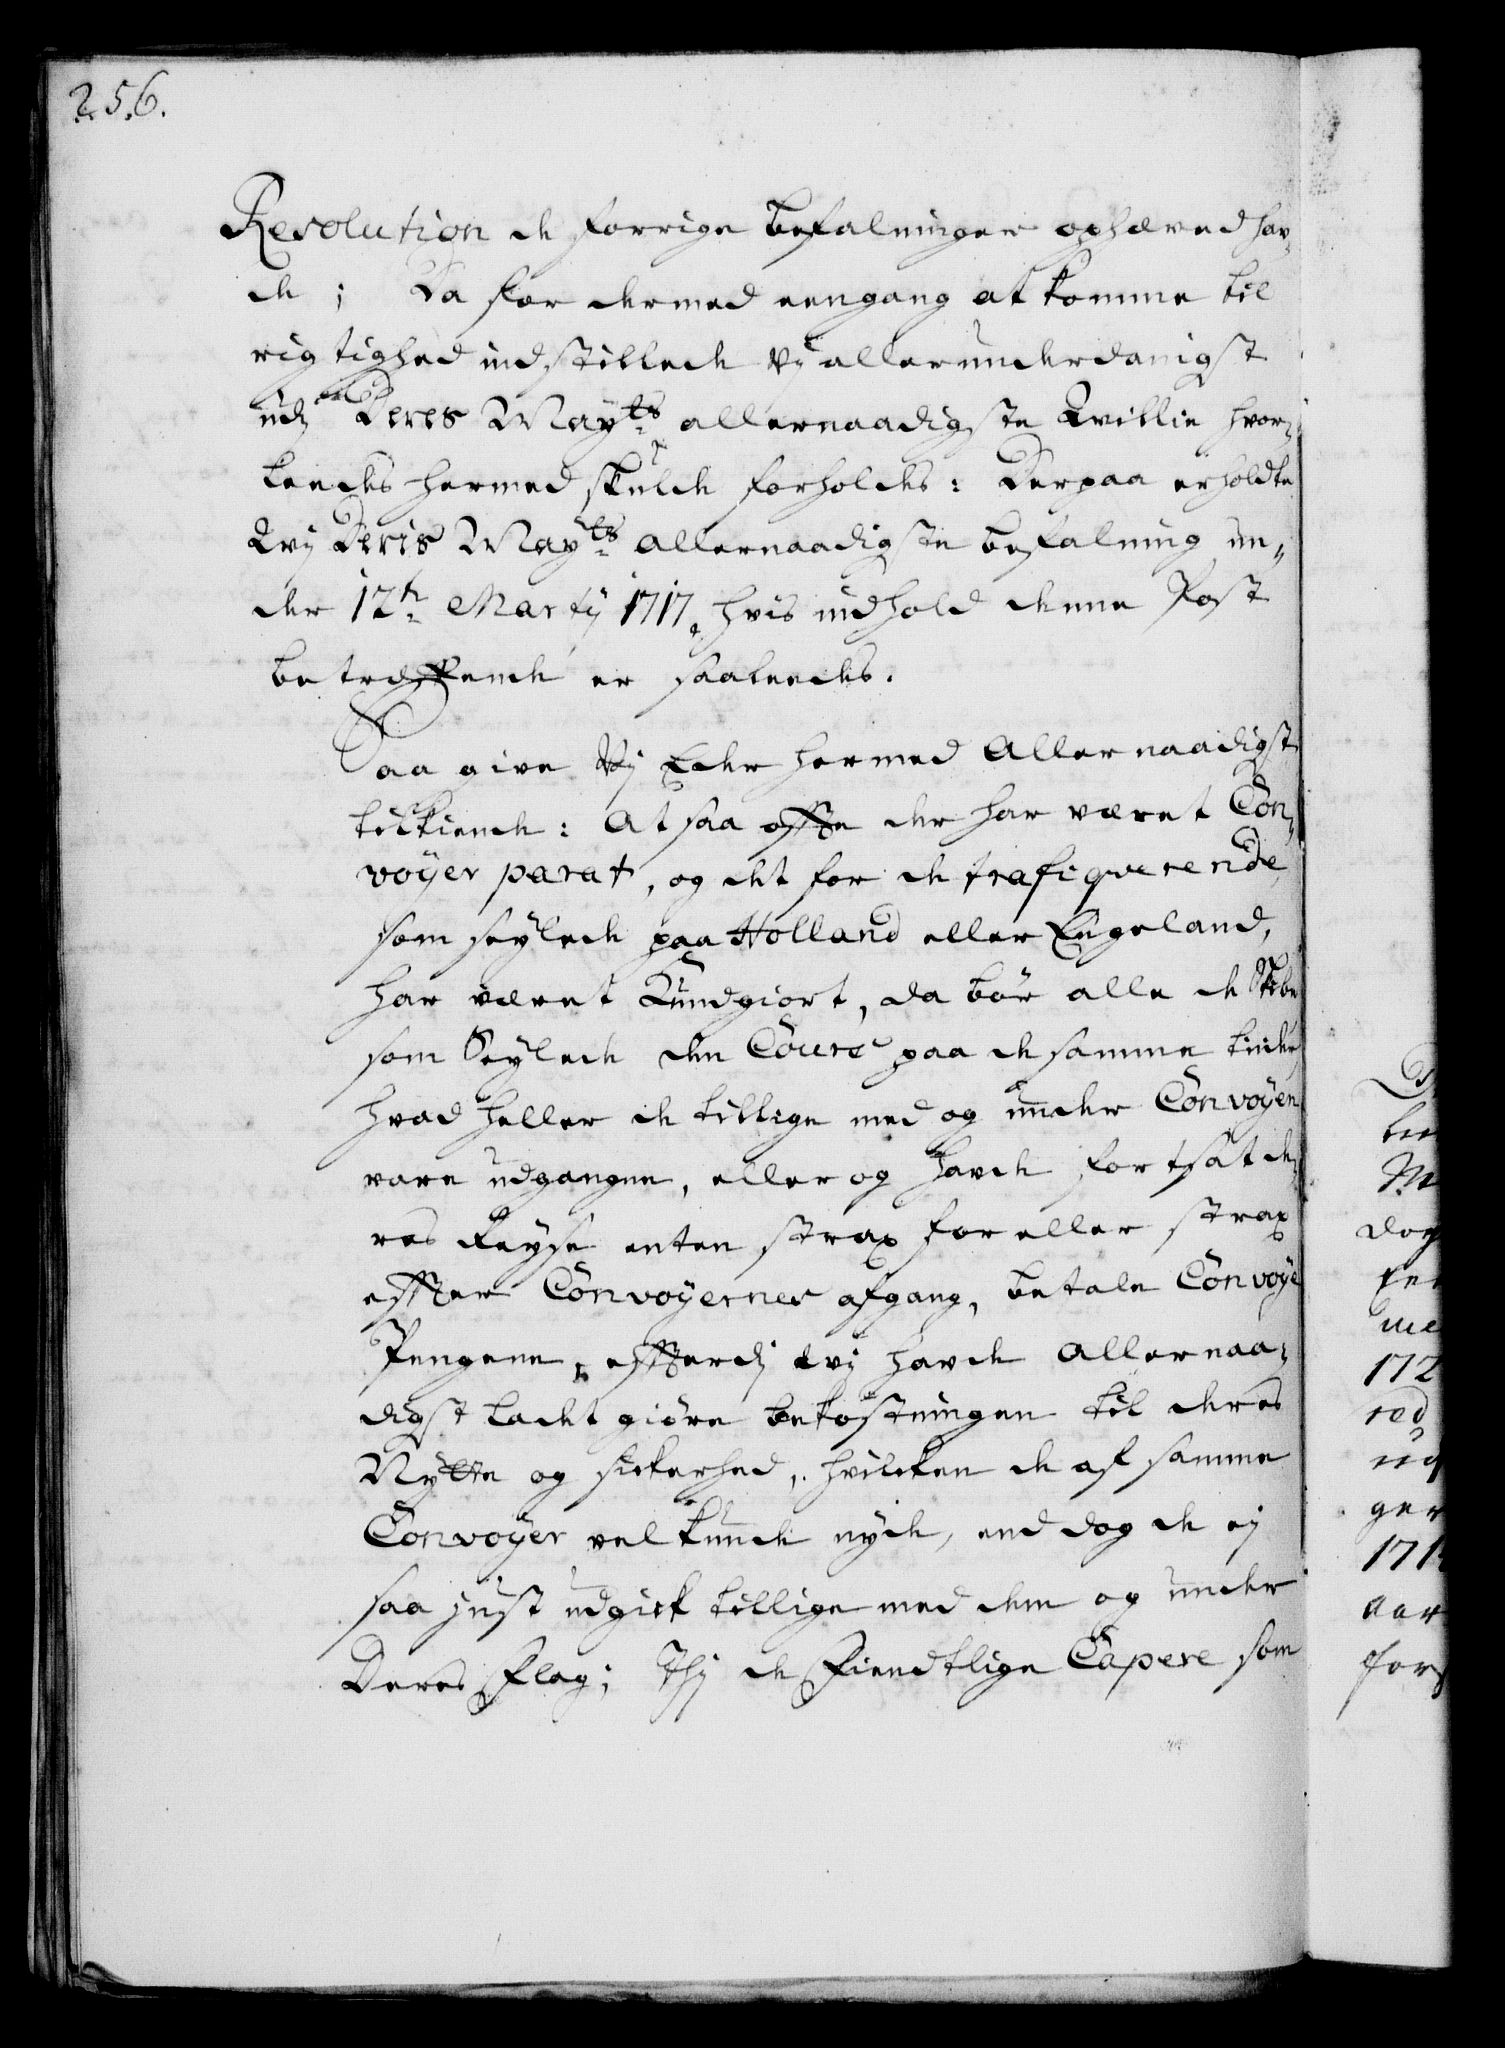 256.
Resolution de forrige befalninger ophævedhav¬
de; Da for dermed eengang at komme til
rigtighed indstillede Vj allerunderdanigst
udj Deres Mayts allernaadigste Villie hvor¬
leedes hermed skulde forholdes: Derpaa erholdte
Vij Deris Mayts allernaadigste befalning un¬
der 12te Martij 1717, hvis indhold denne Post
betræffende er saaleedes.
Saa give Vij Eder hermed Allernaadigst
tilkiende: At saa offte der har været Con¬
voyer parat, og det for de trafiqverende,
som seylede paa Holland eller Engeland,
har været Kundgiort, da bör alle de Skibe
som Seylede den Cours paa de samme tiider,
hvad heller de tillige med og under Convoyen
vare udgangne, eller og havde fortsat de¬
res Reyse enten strax for eller strax
effter Convoyernes afgang, betale Convoye
Pengene, effterdj vij havde Allernaa¬
digst ladet giöre bekostningen til deres
Nytte og sickerhed, hvilcken de af samme
Convoyer vel kunde nyde, end dog de ej
saa just udgick tillige med dem og under
Deres Flag; Thj de Fiendtlige Capere som
172
red
ger
171
aar